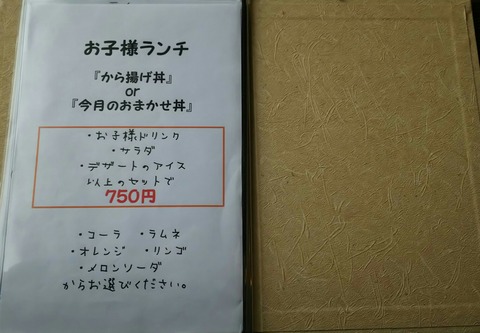 お子様ランチ
『から揚げ丼』
or
『今月のおまかせ丼』
・お子様ドリンク
・サラダ
・デザートのアイス
以上のセットで
750円
・コーラ ・ラムネ
・オレンジ ・リンゴ
・メロンソーダ
からお選びください。